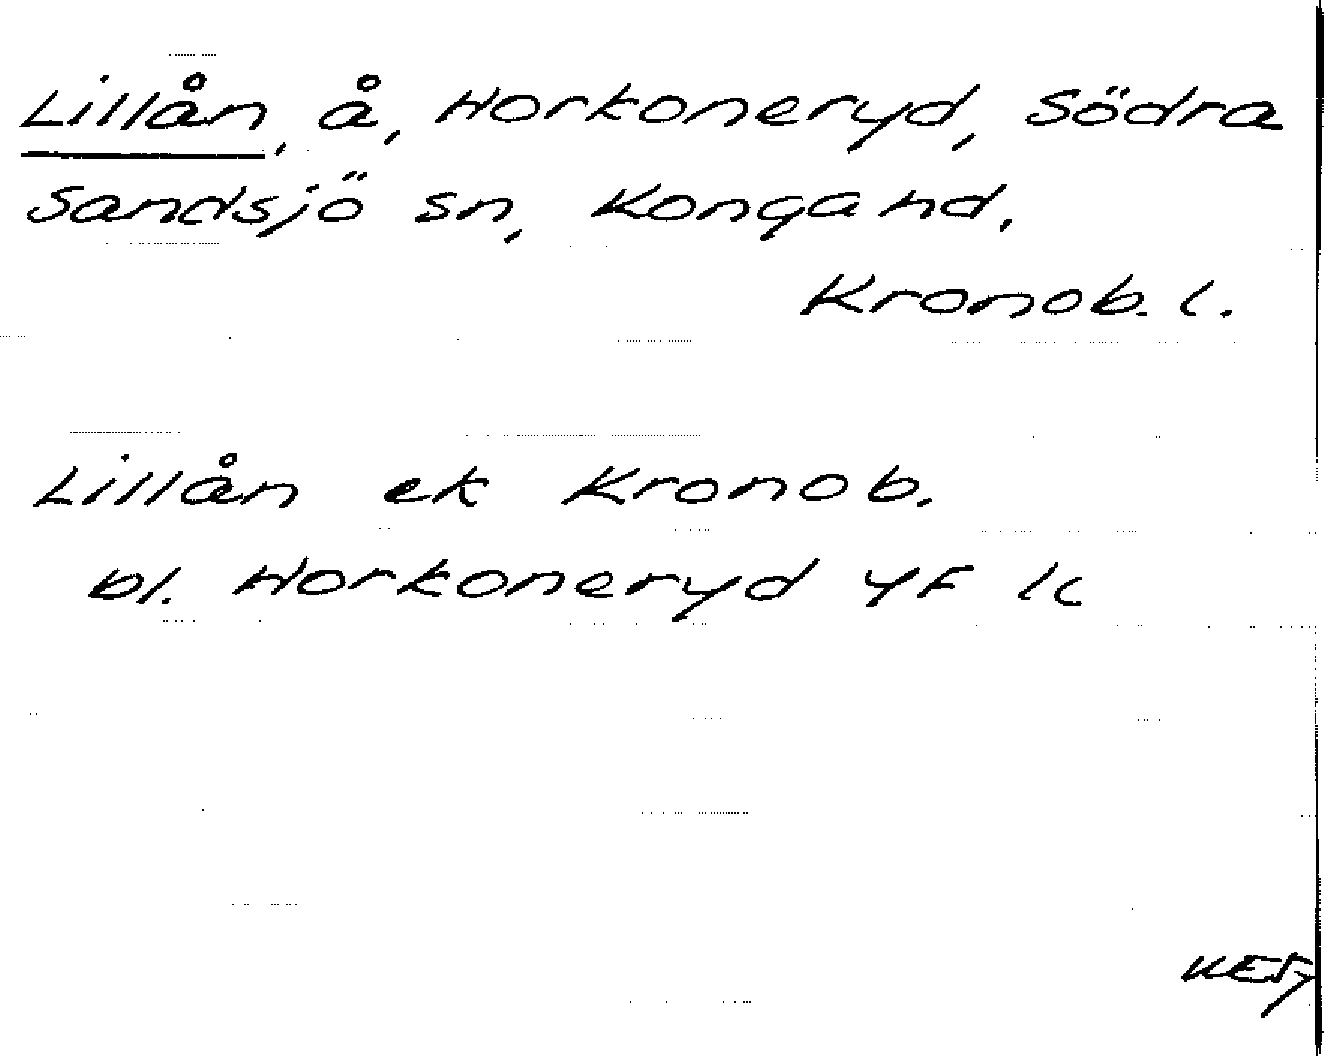 Lillån, å, Horkoneryd, Södra
Sandsjö sn, Konga hd,
Kronob. l.
Lillån ek Kronob.
bl. Horkoneryd 4F 1c